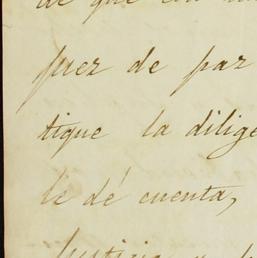 de que
juez de paz
tique la dilige
le dé cuenta,
Justicia y